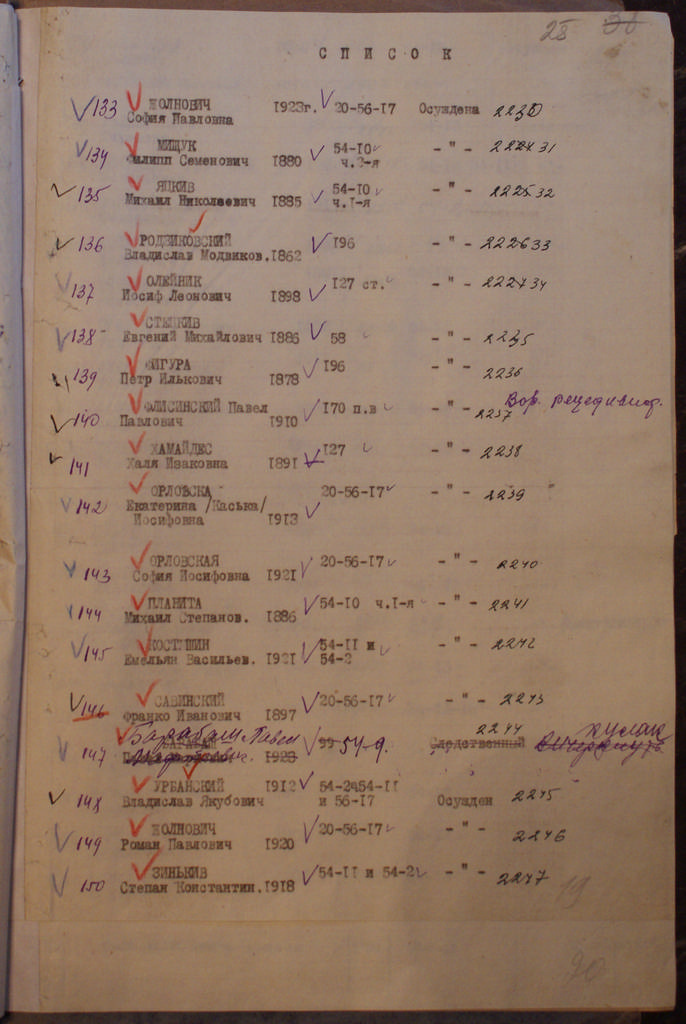 28
СПИСОК
133 ЖОЛНОВИЧ 1923г. 20-56-17 Осуждена 2230
София Павловна
134 МИЩУК 54-10 - " - 31
Филипп Семенович 1880 ч.2-я
135 ЯЦКИВ 54-10 - " - 32
Михаил Николаевич 1885 ч.1-я
136 РОДЗИКОВСКИЙ 196 - " - 33
Владислав Модвиков. 1862
137 ОЛЕЙНИК 127 ст. - " - 34
Иосиф Леонович 1898
138 СТЕЦКИВ
Евгений Михайлович 1886 58 - " - 2235
139 ФИГУРА 196 - " - 2236
Петр Илькович 1878
Вор. рецедивист.
140 ФЛИСИНСКИЙ Павел 170 п.в - " - 2237
Павлович 1910
141 ХАМАЙДЕС 127 - " - 2238
Халя Исаковна 1891
142 ОРЛОВСКА 20-56-17 - " - 2239
Екатерина /Каська/
Иосифовна 1913
143 ОРЛОВСКАЯ 20-56-17 - " - 2240
София Иосифовна 1921
144 ПЛАНИТА 54-10 ч.1-я - " - 2241
Михаил Степанов. 1886
145 КОСТЫШИН 54-11 и - " - 2242
Емельян Васильев. 1921 54-2
146 САВИНСКИЙ 20-56-17 - " - 2243
Франко Иванович 1897
147 Барабаш Павел 54-9. Следственный 2244 кулак
1923 вичеркнуть
148 УРБАНСКИЙ 1912 54-2 54-11
Владислав Якубович и 56-17 Осужден 2245
149 ЖОЛНОВИЧ 20-56-17 - " - 2246
Роман Павлович 1920
150 ЗИНЬКИВ 54-11 и 54-2 - " - 2247
Степан Константин. 1918
19
20